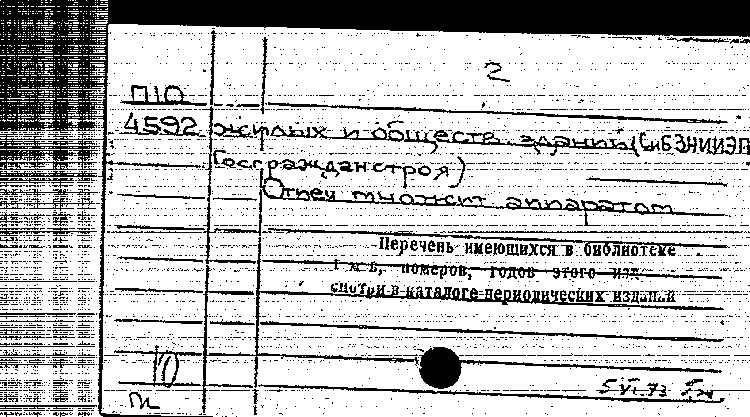 2
П10
4592 жилых и обществ. зданий (СибЗНИИЭП
Госгражданстроя)
Отпеч множит аппаратом
Перечень имеющихся в библиотеке
номеров, годов этого изд.
смотри в каталоге периодических изданий
5 VI.73